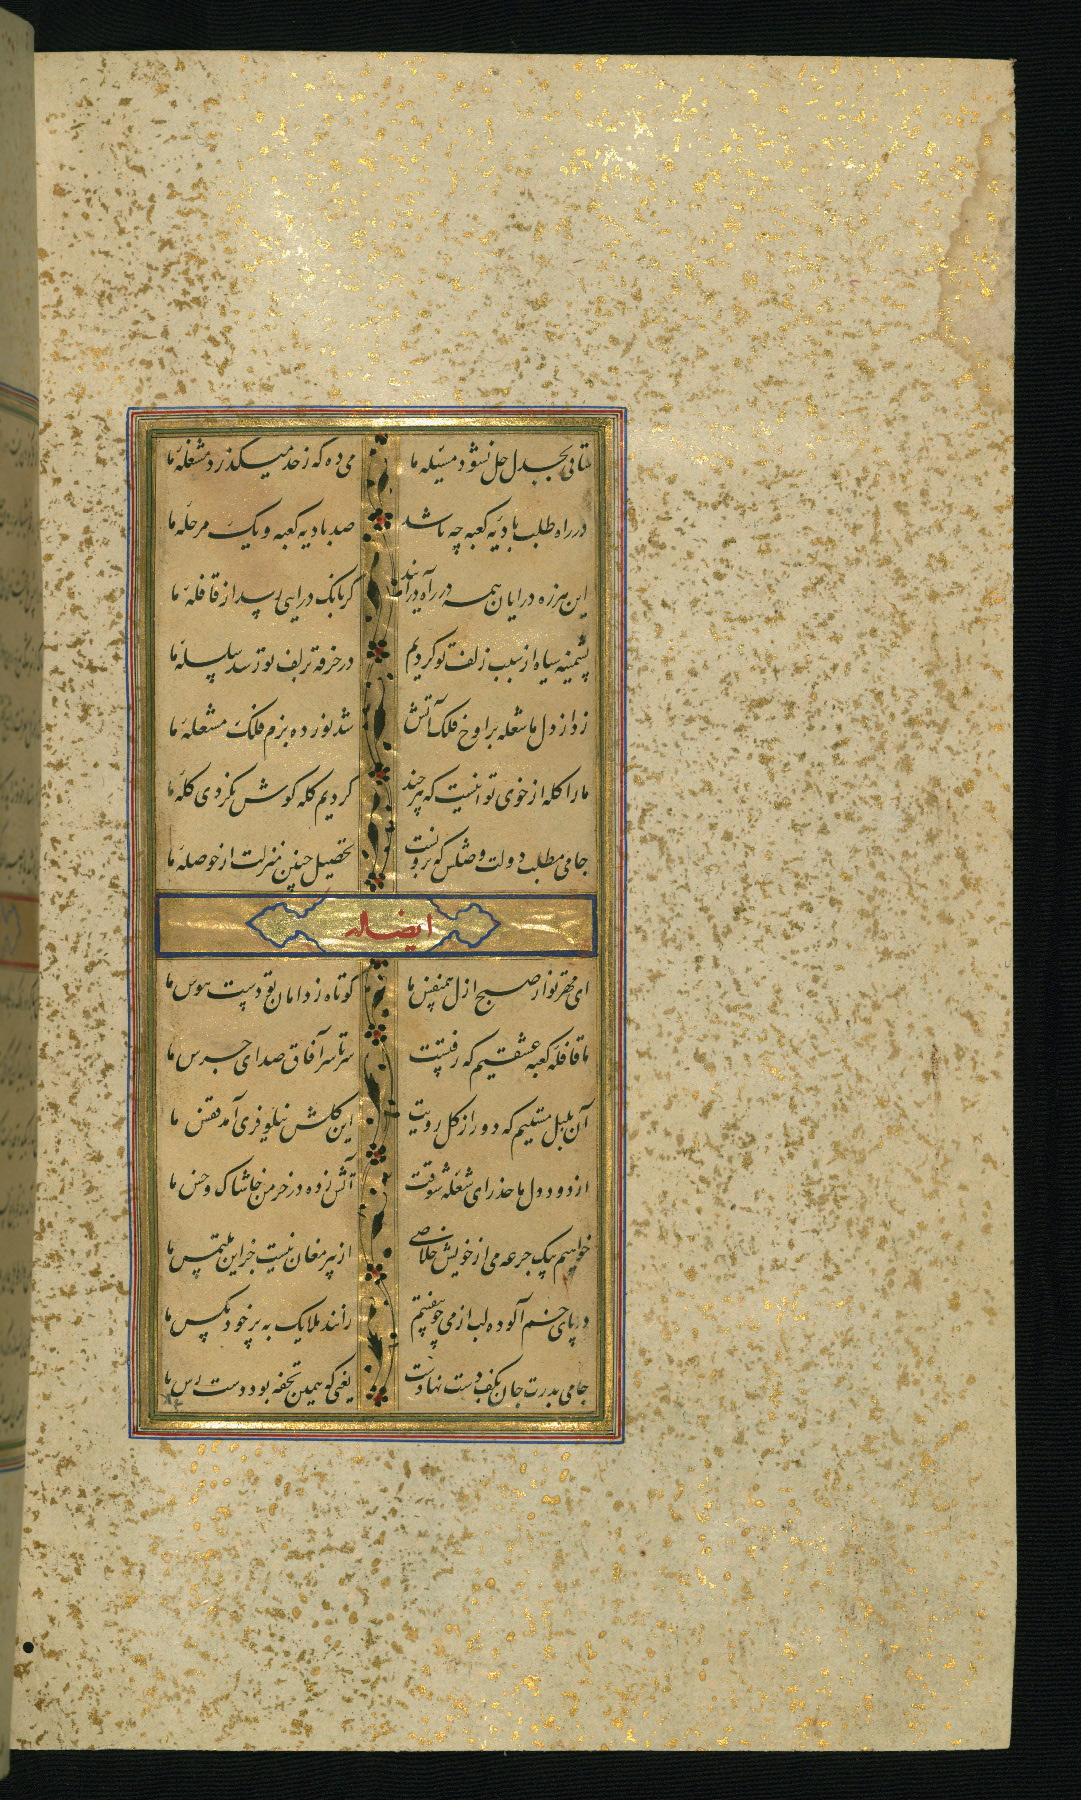 ملتانی بجدل حل نشود مسئله ما می ده که ز حد میگذرد مشغله ما
در راه طلب بادیه کعبه چه باشد صد بادیه کعبه و یک مرحله ما
این هرزه درایان همه در راه درآیند کر بانک درایی رسد از قافله ما
پشمینه سیاه از سبب زلف تو کردیم در خرقه بزلف تو رسد سلسله ما
زد از دل ما شعله بر اوج فلک آتش شد نور ده بزم فلک مشعله ما
ما را کله از خوی تو اینست که هر چند کردیم کله کوش نکردی کله ما
جامی مطلب دولت وصلش که برونست تحصیل چنین منزلت از حوصله ما
ایضا له
ای مهر تو از صبح ازل همنفس ما کوتاه ز دامان تو دست هوس ما
ما قافله کعبه عشقیم که رفتست سرتاسر آفاق صدای جرس ما
آن بلبل مستیم که دور از کل رویت این کلشن نیلوفری آمد قفس ما
از دود دل ما حذر ای شعله شوقت آتش زده در خرمن خاشاک و خس ما
خواهیم بیک جرعه می از خویش خلاصی از پیر مغان نیست جز این ملتمس ما
در پای خم آلوده لب از می چو بیفتیم رانند ملایک به پر خود مکس ما
جامی بدرت جان بکف دست نهادست یعنی که همین تحفه بود دست رس ما